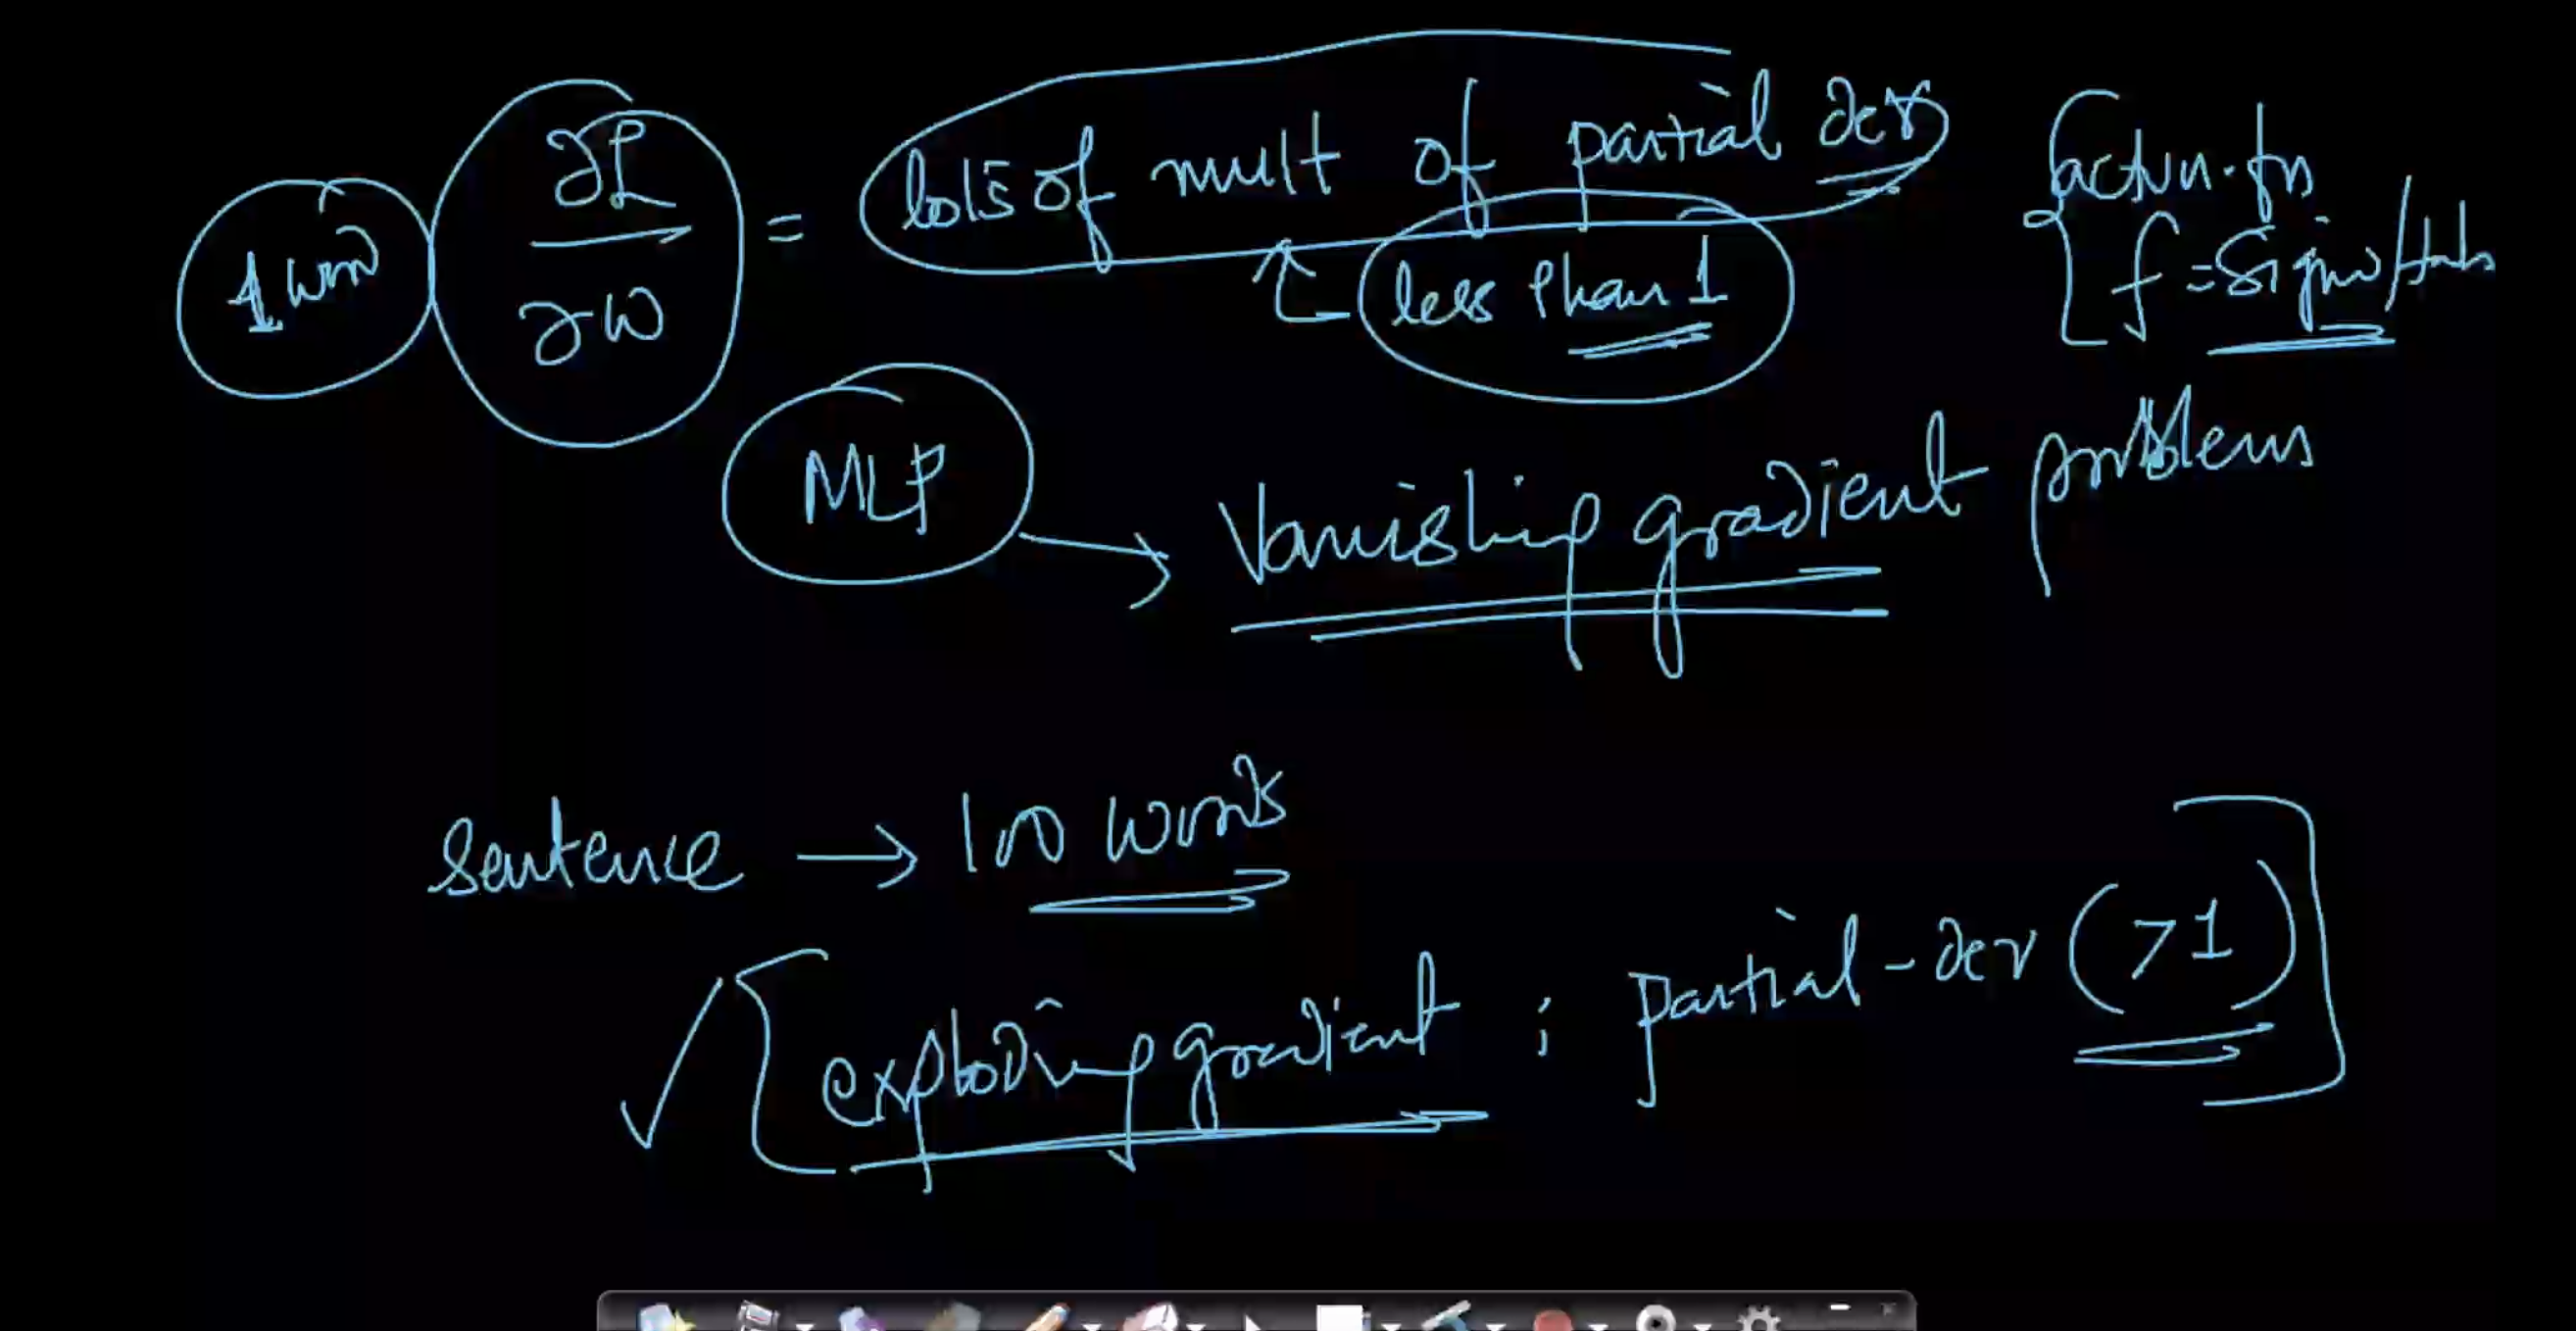 1 word ∂L/∂w = lots of mult of partial der
less than 1
activn. fn
f = sigm/tanh
MLP → Vanishing gradient problem
sentence → 100 words
exploding gradient ; partial-der (>1)